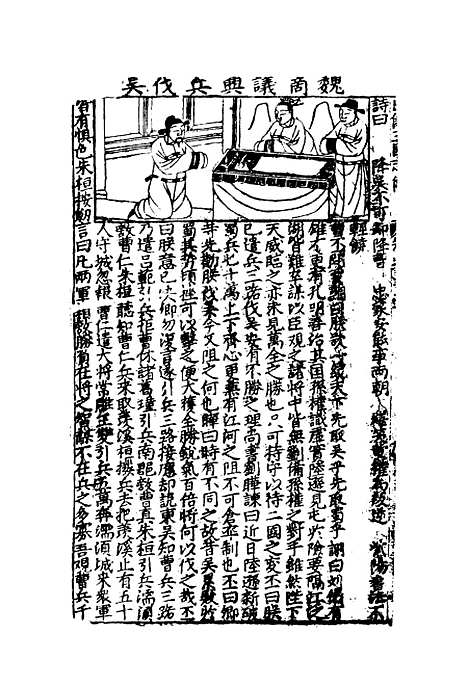 魏商議興兵伐吳
詩曰 降吳不可却降曹 忠義安能事兩朝 紫陽書法不
輕饒
曹丕問賈詡曰朕欲一統天下先取吳乎先取蜀乎詡曰劉備有
雄才更有孔明善治其國孫權識虛實陸遜見屯兵險要隔江泛
湖皆難卒謀以臣觀之諸將中皆無劉備孫權之對手雖然陛下
天威臨之亦未見萬全之勝也只可持守以待二國之變丕曰朕
已遣兵三路伐吳安有不勝之理尚書劉曄諫曰近日陸遜新破
蜀兵七十萬上下齊心更兼有江河之阻不可倉卒制也丕曰卿
昔先勸朕伐吳今又阻之何也曄曰時有不同之故昔吳累敗於
蜀其勢頓挫可以擊之便大獲全勝銳氣百倍將何以伐之哉丕
曰朕意已決卿勿復言遂引兵三路接應却說東吳知曹兵三路
乃遣呂範引兵拒曹休諸葛瑾引兵南郡敵曹真朱桓引兵濡須
敵曹仁朱桓聽知曹仁兵來取羨溪桓撥兵去把羨溪止有五十
人守城忽報曹仁遣大將常雕王雙引兵五萬奔濡須城來眾軍
皆有惧色朱桓按劍言曰凡兩軍相敵勝負在將之智謀不在兵之多寡吾觀曹兵千